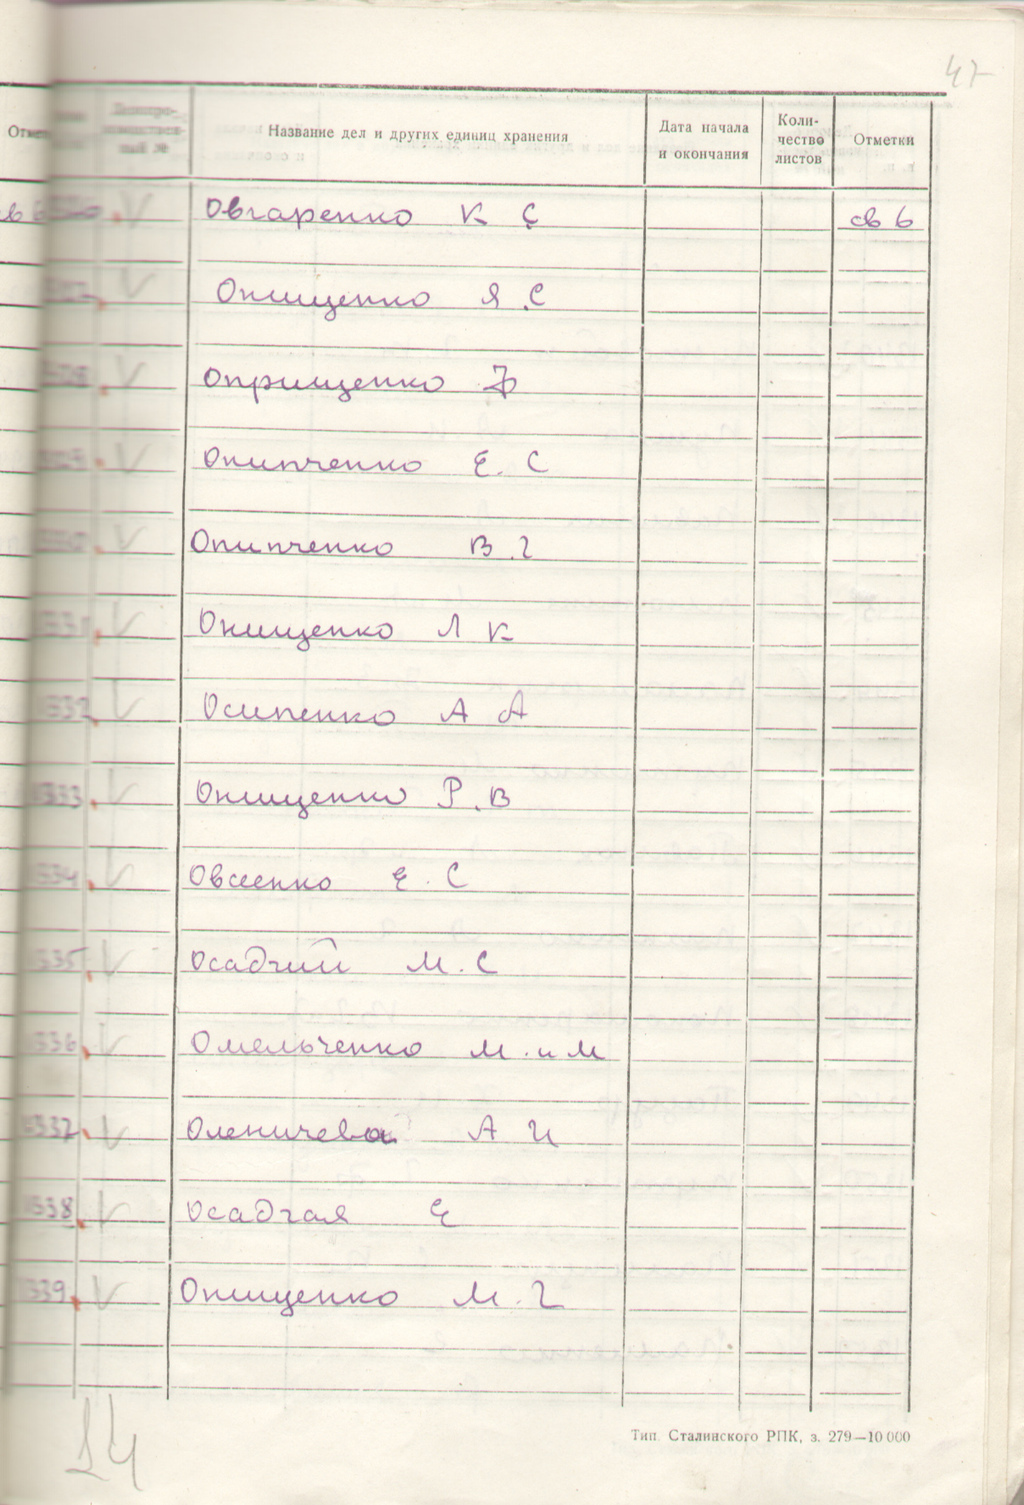 47
Название дел и других единиц хранения
Дата начала и окончания
Коли-
чество
листов
Отметки
Овчаренко К С св 6
Онищенко Я. С
Оприщенко Ф
Онипченко Е. С
Онипченко В. Г
1331 Онищенко Л К
1332 Осипенко А А
1333 Онищенко Р. В
1334 Овсеенко Е. С
1335 Осадчий М. С
1336 Омельченко М. и М
1337 Оленичева А И
1338 Осадчая Е
1339 Онищенко М. Г
14
Тип. Сталинского РПК, з. 279—10 000